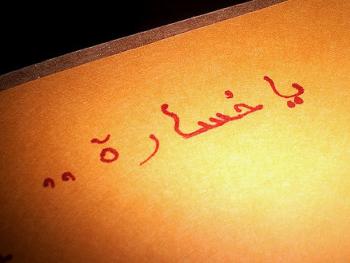 يا خسارة ،،